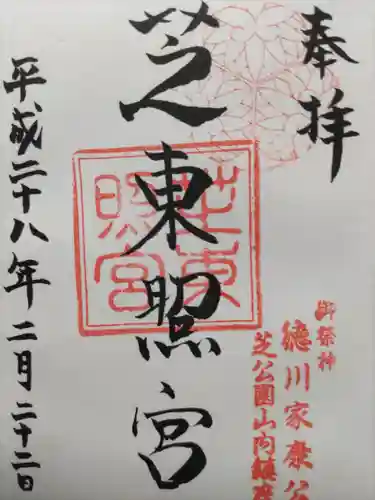 奉拝
御祭神
徳川家康公
芝公園山内鎮座
芝東照宮
芝東照宮
平成二十八年二月二十二日